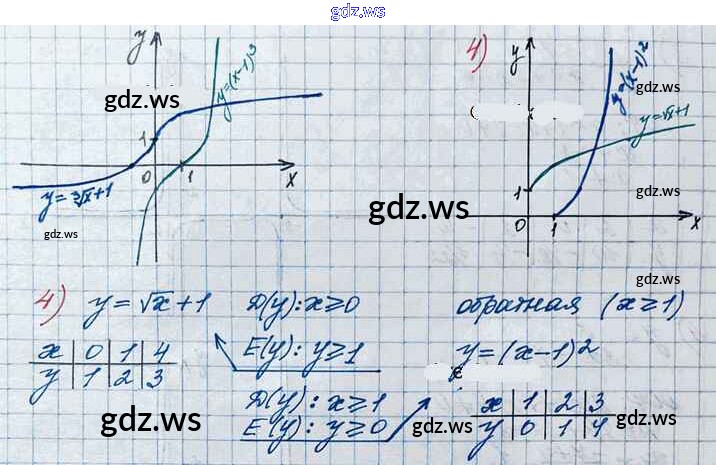 gdz.ws
gdz.ws
y
y=(x-1)³
gdz.ws
1
0
1
x
y=∛x+1
gdz.ws
4)
y
y=(x-1)²
gdz.ws
y=√x+1
gdz.ws
gdz.ws
1
0
1
x
gdz.ws
4) y=√x+1
D(y): x≥0
E(y): y≥1
x | 0 | 1 | 4
y | 1 | 2 | 3
gdz.ws
D(y): x≥1
E(y): y≥0
обратная (x≥1)
y=(x-1)²
x | 1 | 2 | 3
y | 0 | 1 | 4
gdz.ws
gdz.ws
gdz.ws